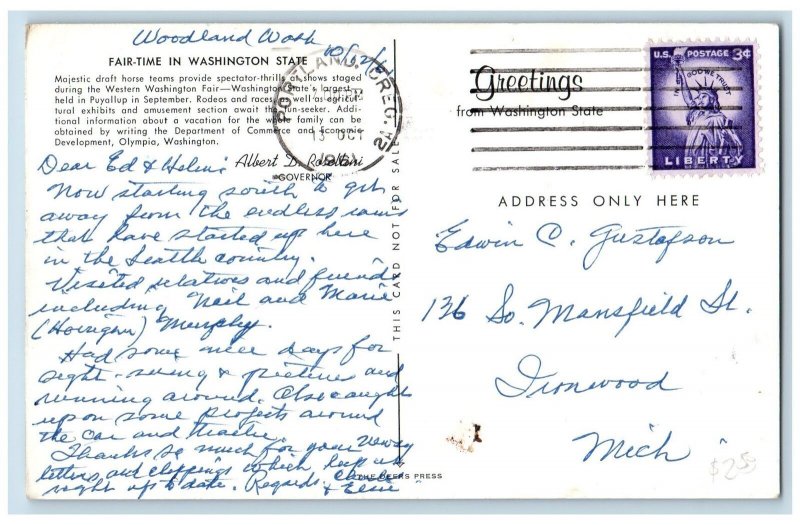 Woodland Wash
10/12/
FAIR-TIME IN WASHINGTON STATE
Majestic draft horse teams provide spectator-thrills at shows staged
during the Western Washington Fair—Washington State's largest—
held in Puyallup in September. Rodeos and races as well as agricul-
tural exhibits and amusement section await the fun-seeker. Addi-
tional information about a vacation for the whole family can be
obtained by writing the Department of Commerce and Economic
Development, Olympia, Washington.
Albert D. Rosellini
GOVERNOR
Dear Ed & Helen:
Now starting south to get
away from the endless rains
that have started up here
in the Seattle country.
Visited relatives and friends
including Neil and Marie
(Horrigan) Murphy.
Had some nice days for
sight-seeing & pictures and
running around. Also caught
up on some projects around
the car and trailer.
Thanks so much for your newsy
letters and clippings which keep us
right up to date. Regards,
& Elsie
THIS CARD NOT FOR SALE
PRESS
PORTLAND, OREG.
13 OCT
Greetings
from Washington State
U.S. POSTAGE 3¢
IN GOD WE TRUST
LIBERTY
ADDRESS ONLY HERE
Edwin C. Gustafson
136 So. Mansfield St.
Ironwood
Mich